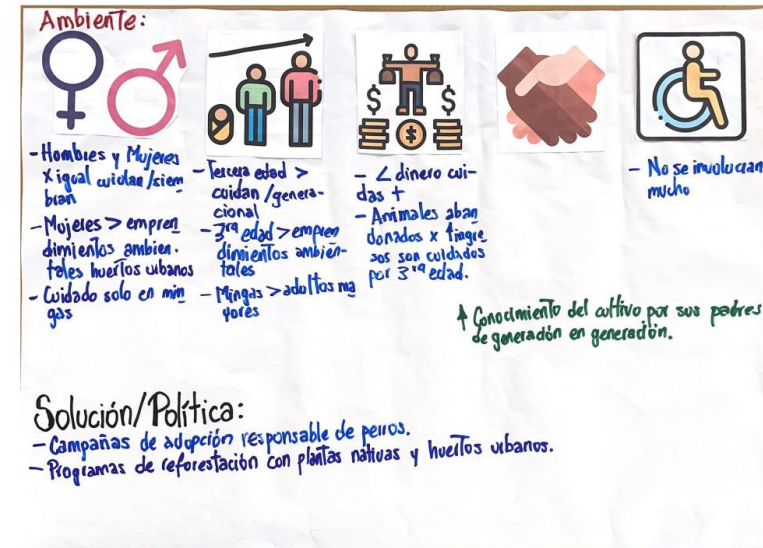 Ambiente:
- Hombres y Mujeres
x igual cuidan/siem
bran
- Mujeres > empren
dimientos ambien.
tales huertos urbanos
- Cuidado solo en min
gas
- Tercera edad >
cuidan/genera-
cional
- 3ra edad > empren
dimientos ambien-
tales
- Mingas > adultos ma
yores
$ $
$ $
$
- < dinero cui-
das +
- Animales aban
donados x
sos son cuidados
por 3ra edad.
- No se involucran
mucho
↑ Conocimiento del cultivo por sus padres
de generación en generación.
Solución/Política:
- Campañas de adopción responsable de perros.
- Programas de reforestación con plantas nativas y huertos urbanos.